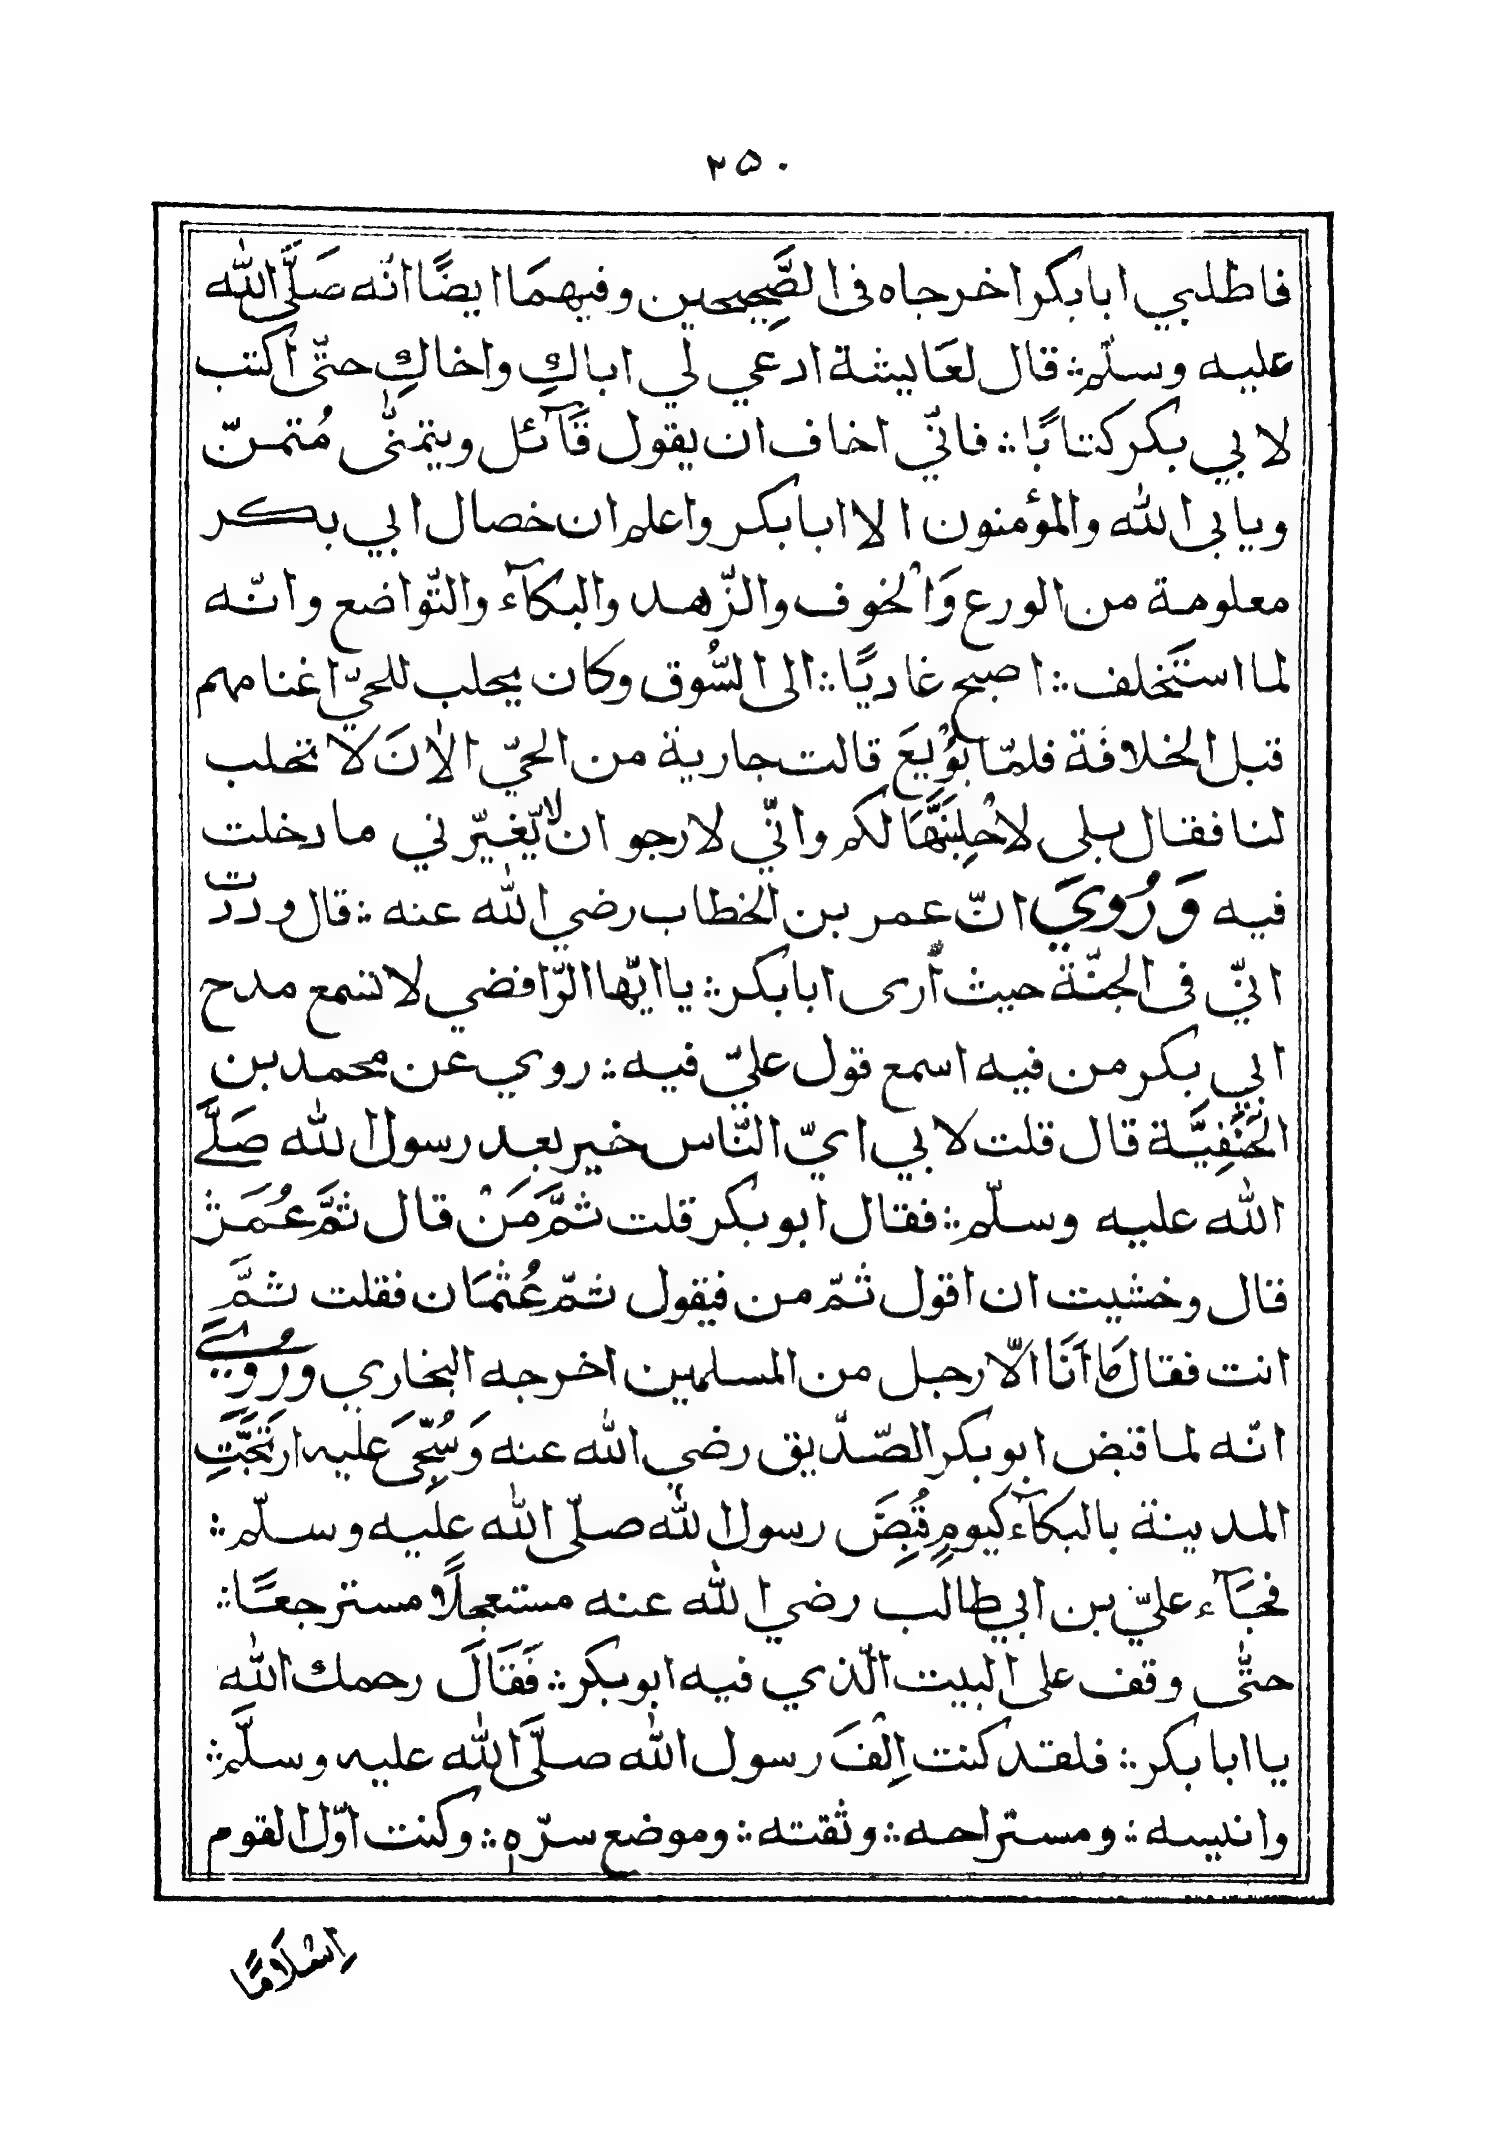 ٢٥٠
فاطلبي ابابكر اخرجاه فى الصَّحِيحين وفيهمَا ايضًا انّه صَلَّى الله
عليه وسلّم ؞ قال لعَايشة ادعي لي اباكِ واخاكِ حتّى اكتب
لابي بكر كتابًا ؞ فانّي اخاف ان يقول قَآئل ويتمنّى مُتمنّ
ويابى الله والمؤمنون الا ابابكر واعلم ان خصال ابي بكر
معلومة من الورع وَالْخوف والزّهد والبكآء والتّواضع وانّه
لما استَخلف ؞ اصبح غاديًا ؞ الى السُّوق وكان يحلب للحيّ اغنامهم
قبل الخلافة فلمّا بُوْيِعَ قالت جارية من الحيّ الاٰنَ لا تحلب
لنا فقال بلى لاَحْلِبَنَّهَا لكم وانّي لارجو ان لا يّغيّرني ما دخلت
فيه وَرُويَ انّ عمر بن الخطاب رضي الله عنه ؞ قال وددتّ
انيّ فى الجنّة حيث أرى ابابكر ؞ يا ايّها الرّافضي لا تسمع مدح
ابي بكر من فيه اسمع قول عليّ فيه ؞ روي عن محمد بن
الحَنَفِيَّة قال قلت لابي ايّ النّاس خير بعد رسول الله صَلَّے
الله عليه وسلّم ؞ فقال ابو بكر قلت ثمَّ مَنْ قال ثمَّ عُمَر ثمّ
قال وخشيت ان اقول ثمّ من فيقول ثمّ عُثْمَان فقلت ثمَّ
انت فقال مَا أنَا الّا رجل من المسلمين اخرجه البخاري ورُوِيَ
انّه لما قبض ابو بكر الصّدّيق رضي الله عنه وَسُجِّىَ عليه ارتَجَّتِ
المدينة بالبكآء كيومِ قُبِضَ رسول الله صلّى الله عليه وسلّم ؞
فجَآء عليّ بن ابي طالب رضي الله عنه مستعجلًا ومسترجعًا ؞
حتّى وقف على البيت الّذي فيه ابو بكر ؞ فَقَالَ رحمك الله
يا ابا بكر ؞ فلقد كنت اِلْفَ رسول الله صلَّى الله عليه وسلَّم ؞
وانيسه ؞ ومستراحه ؞ وثقته ؞ وموضع سرّه ؞ وكنت اوّل القوم
اِسْلَامًا